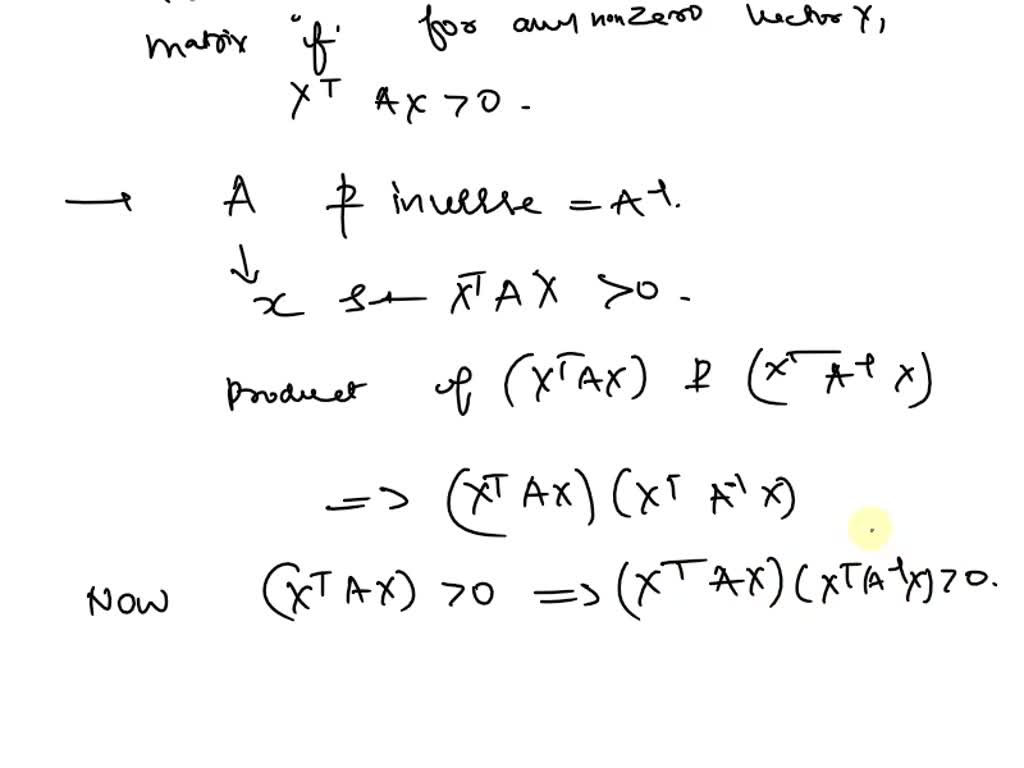 matrix "if" for any nonzero vector X,
X^T AX > 0 .
→ A & inverse = A^-1.
↓
x s← X^T A X > 0 .
product of (X^T AX) & (X^T A^-1 X)
=> (X^T AX) (X^T A^-1 X)
Now (X^T AX) > 0 => (X^T AX) (X^T(A^-1X) > 0.